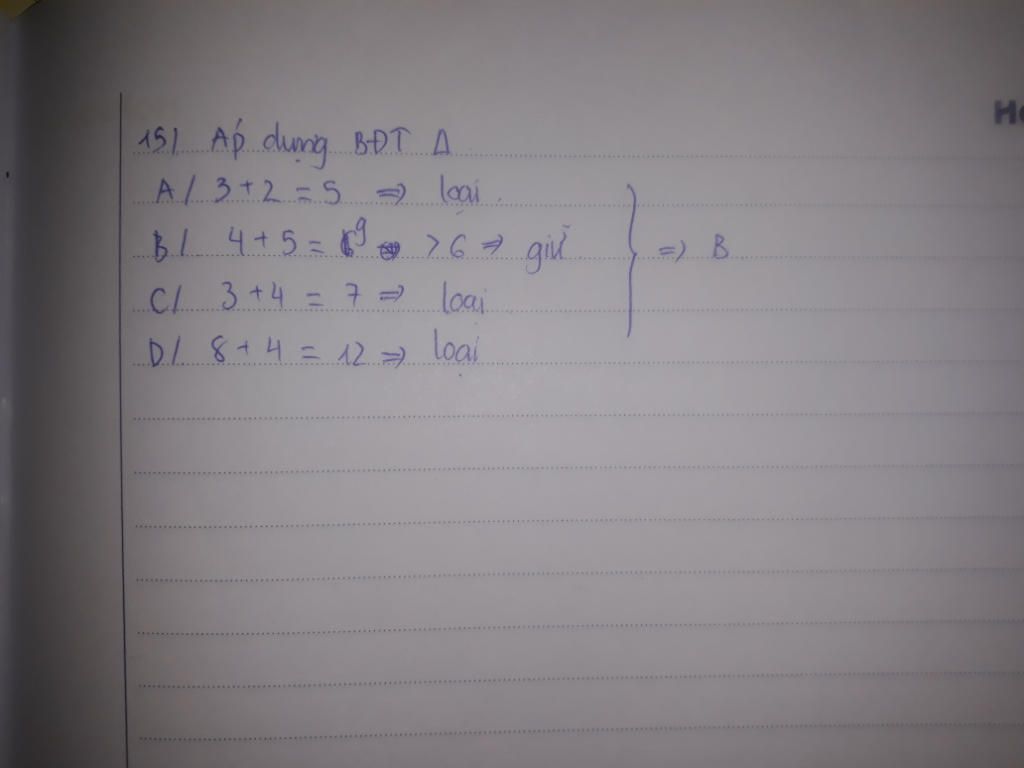 15/ Áp dụng BĐT Δ
A/ 3 + 2 = 5 => loại.
B/ 4 + 5 = 9 > 6 => giữ. => B
C/ 3 + 4 = 7 => loại
D/ 8 + 4 = 12 => loại